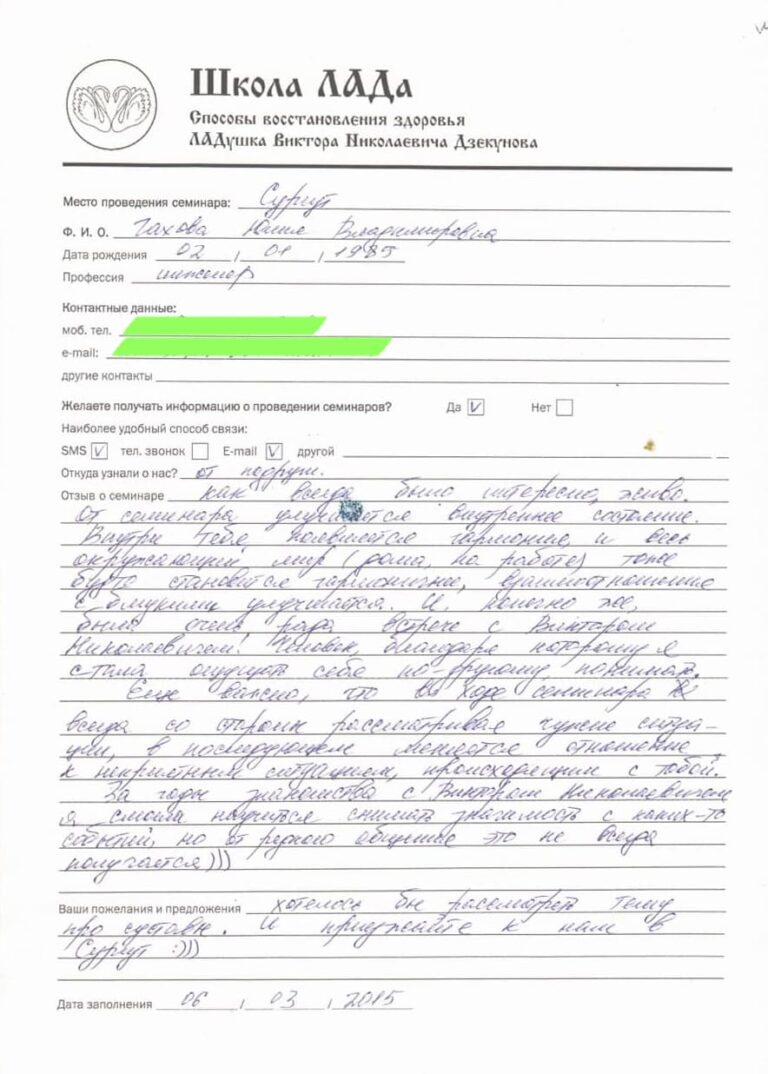 Школа ЛАДа
Способы восстановления здоровья
ЛАДушка Виктора Николаевича Дзекунова
Место проведения семинара: Сургут
Ф. И. О. Гахова Юлия Владимировна
Дата рождения 02 , 01 , 1985
Профессия инженер
Контактные данные:
моб. тел.
e-mail:
другие контакты
Желаете получать информацию о проведении семинаров? Да V Нет
Наиболее удобный способ связи:
SMS V тел. звонок E-mail V другой
Откуда узнали о нас? от подруги.
Отзыв о семинаре как всегда было интересно, живо.
От семинара улучшается внутреннее состояние.
Внутри тебя появляется гармония, и весь
окружающий мир (дома, на работе) тоже
будто становится гармоничнее, взаимоотношение
с близкими улучшается. И, конечно же,
была очень рада встрече с Виктором
Николаевичем! Человек, благодаря которому я
стала ощущать себя по-другому, понимать.
Еще важно, что в ходе семинара
всегда со сторон рассматривая чужие ситуа-
ции, в последующем меняется отношение
к неприятным ситуациям, происходящим с тобой.
За годы знакомства с Виктором Николаевичем
я смогла научиться снимать значимость с каких-то
событий, но от редкого общения это не всегда
получается)))
Ваши пожелания и предложения хотелось бы рассмотреть тему
про суставы. И приезжайте к нам в
Сургут :)))
Дата заполнения 06 , 03 , 2015